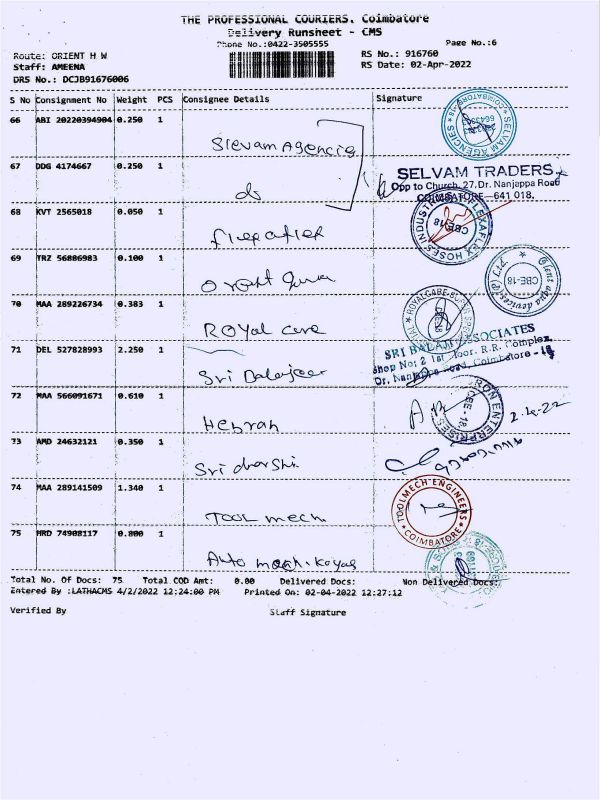 THE PROFESSIONAL COURIERS. Coimbatore
Delivery Runsheet - CMS
Phone No.:0422-3505555
Page No.:6
Route: ORIENT H W
RS No.: 916760
Staff: AMEENA
RS Date: 02-Apr-2022
DRS No.: DCJB91676006
S No Consignment No Weight PCS Consignee Details Signature
66 ABI 20220394904 0.250 1
Slevam Agencies
SELVAM AGENCIES
67 DDG 4174667 0.250 1
do
SELVAM TRADERS
Opp to Church, 27, Dr. Nanjappa Road
COIMBATORE - 641 018.
68 KVT 2565018 0.050 1
CBE-18
69 TRZ 56886983 0.100 1
CBE-18
70 MAA 289226734 0.383 1
Royal care
71 DEL 527828993 2.250 1
Sri Balajee
SRI BALAJI ASSOCIATES
Shop No: 2 1st floor. R.R. Complex,
Dr. Nanjappa road, Coimbatore - 18
72 MAA 566091671 0.610 1
Hebrah
CBE - 18.
2.4.22
73 AMD 24632121 0.350 1
Sri darshi
74 MAA 289141509 1.340 1
TOOL mech
TOOLMECH ENGINEERS
COIMBATORE
75 HRD 74908117 0.800 1
Auto
Total No. Of Docs: 75 Total COD Amt: 0.00 Delivered Docs: Non Delivered Docs:
Entered By :LATHACMS 4/2/2022 12:24:00 PM Printed On: 02-04-2022 12:27:12
Verified By Staff Signature